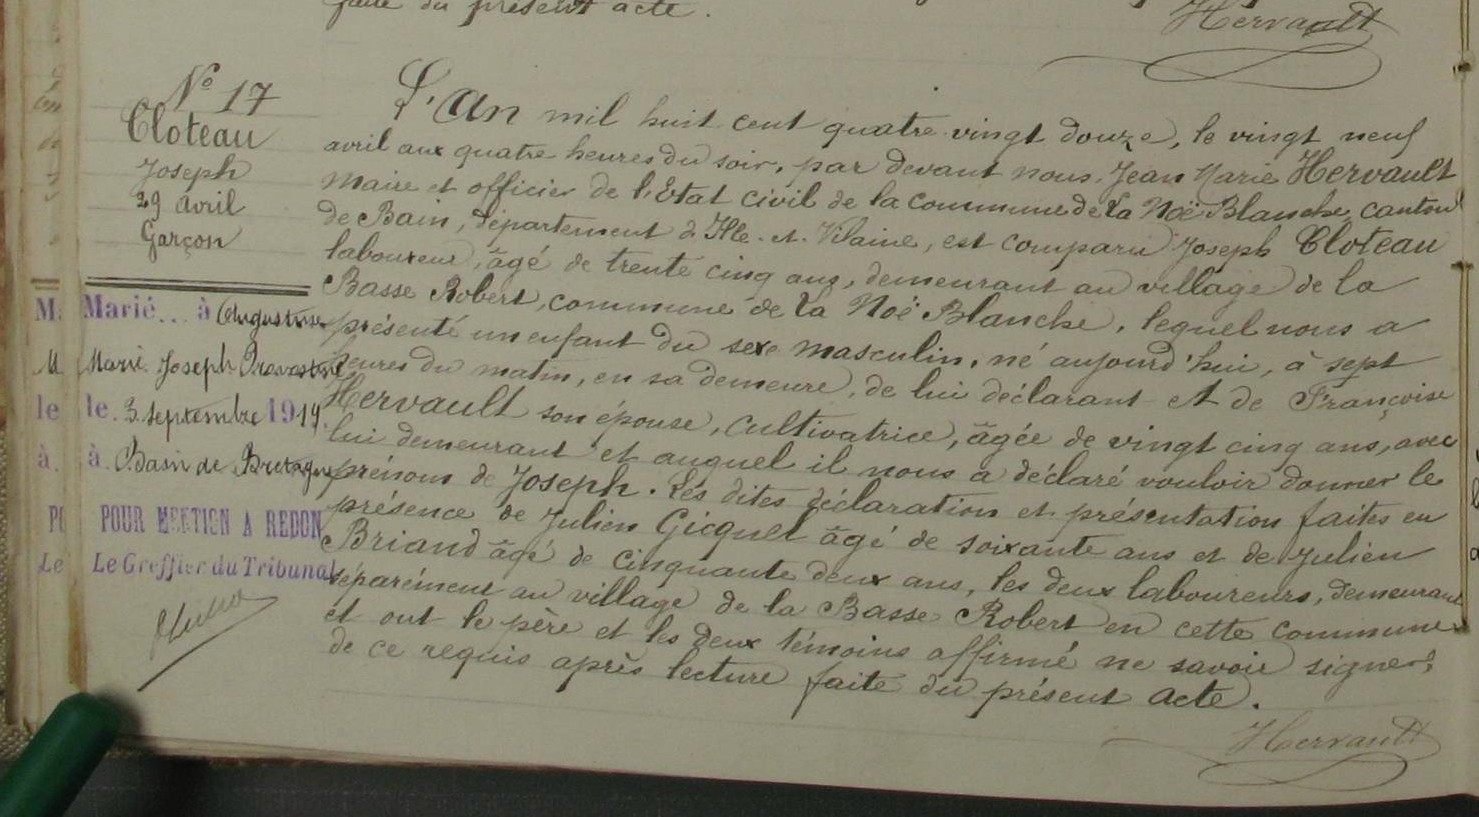 faite du présent acte.
Hervault
N° 17
Cloteau
Joseph
29 avril
Garçon
Marié... à Augustine
Marie Joseph
le 3 septembre 1919.
à Bain de Bretagne
POUR MENTION A REDON
Le Greffier du Tribunal
L'An mil huit cent quatre vingt douze, le vingt neuf
avril aux quatre heures du soir, par devant nous, Jean Marie Hervault
Maire et officier de l'Etat civil de la commune de la Noë Blanche, canton
de Bain, département d'Ille-et-Vilaine, est comparu Joseph Cloteau
laboureur, âgé de trente cinq ans, demeurant au village de la
Basse Robert, commune de la Noë Blanche, lequel nous a
présenté un enfant du sexe masculin, né aujourd'hui, à sept
heures du matin, en sa demeure, de lui déclarant et de Françoise
Hervault son épouse, cultivatrice, âgée de vingt cinq ans, avec
lui demeurant et auquel il nous a déclaré vouloir donner le
prénom de Joseph. Les dites déclaration et présentation faites en
présence de Julien Gicquel âgé de soixante ans et de Julien
Briand âgé de cinquante deux ans, les deux laboureurs, demeurant
séparément au village de la Basse Robert en cette commune
et ont le père et les deux témoins affirmé ne savoir signer,
de ce requis après lecture faite du présent acte.
Hervault